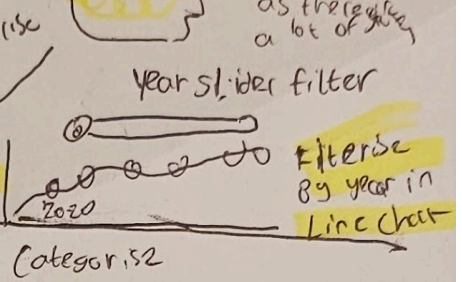 rise
as there
a lot of
Year slider filter
Filterise
By year in
Line Chart
2020
Categorise